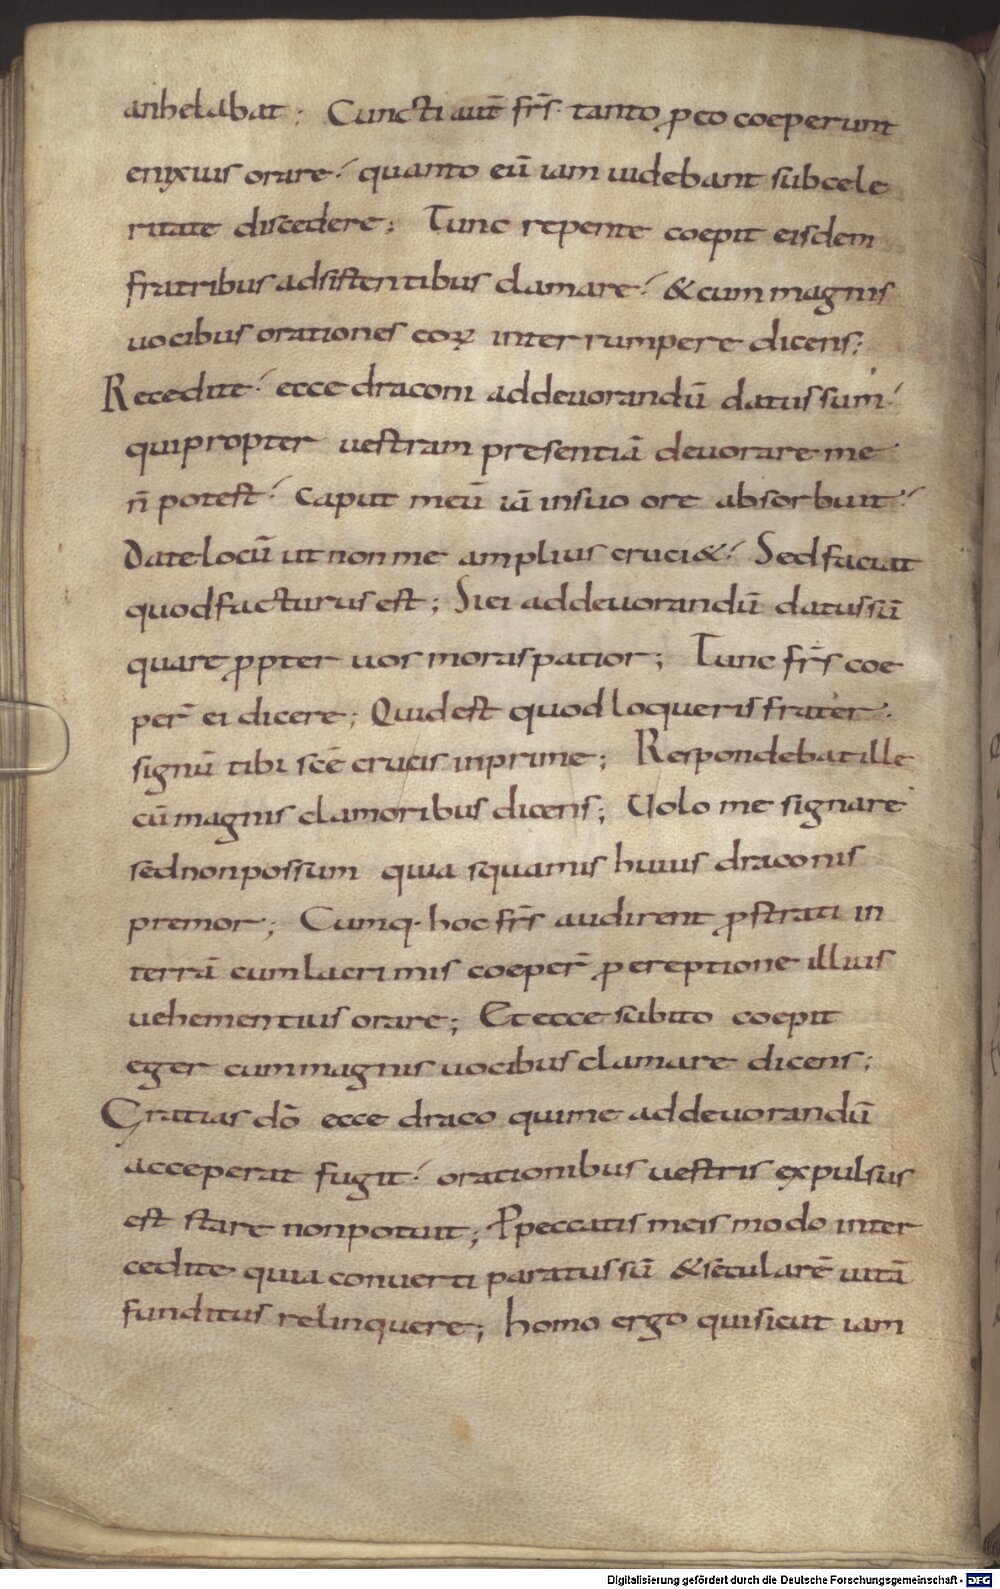 anhelabat; Cuncti aut̄ fr̄s tanto ꝓ eo coeperunt
enixius orare quanto eū iam uidebant sub cele
ritate discedere; Tunc repente coepit eisdem
fratribus adsistentibus clamare & cum magnis
uocibus orationes eoꝝ interrumpere dicens;
Recedite ecce draconi ad deuorandū datus sum
qui propter uestram presentiā deuorare me
n̄ potest Caput meū iā in suo ore absorbuit
Date locū ut non me amplius cruci& Sed faciat
quod facturus est; Si ei ad deuorandū datus sū
quare ꝓpter uos moras patior; Tunc fr̄s coe
per̄ ei dicere; Quid est quod loqueris frater
signū tibi scē crucis inprime; Respondebat ille
cū magnis clamoribus dicens; Uolo me signare
sed non possum quia squamis huius draconis
premor; Cumq· hoc fr̄s audirent ꝓstrati in
terrā cum lacrimis coeper̄ ꝓ ereptione illius
uehementius orare; Et ecce subito coepit
eger cum magnis uocibus clamare dicens;
Gratias dō ecce draco qui me ad deuorandū
acceperat fugit orationibus uestris expulsus
est stare non potuit; P peccatis meis modo inter
cedite quia conuerti paratus sū & sēcularē uitā
funditus relinquere; homo ergo qui sicut iam
Digitalisierung gefördert durch die Deutsche Forschungsgemeinschaft - DFG